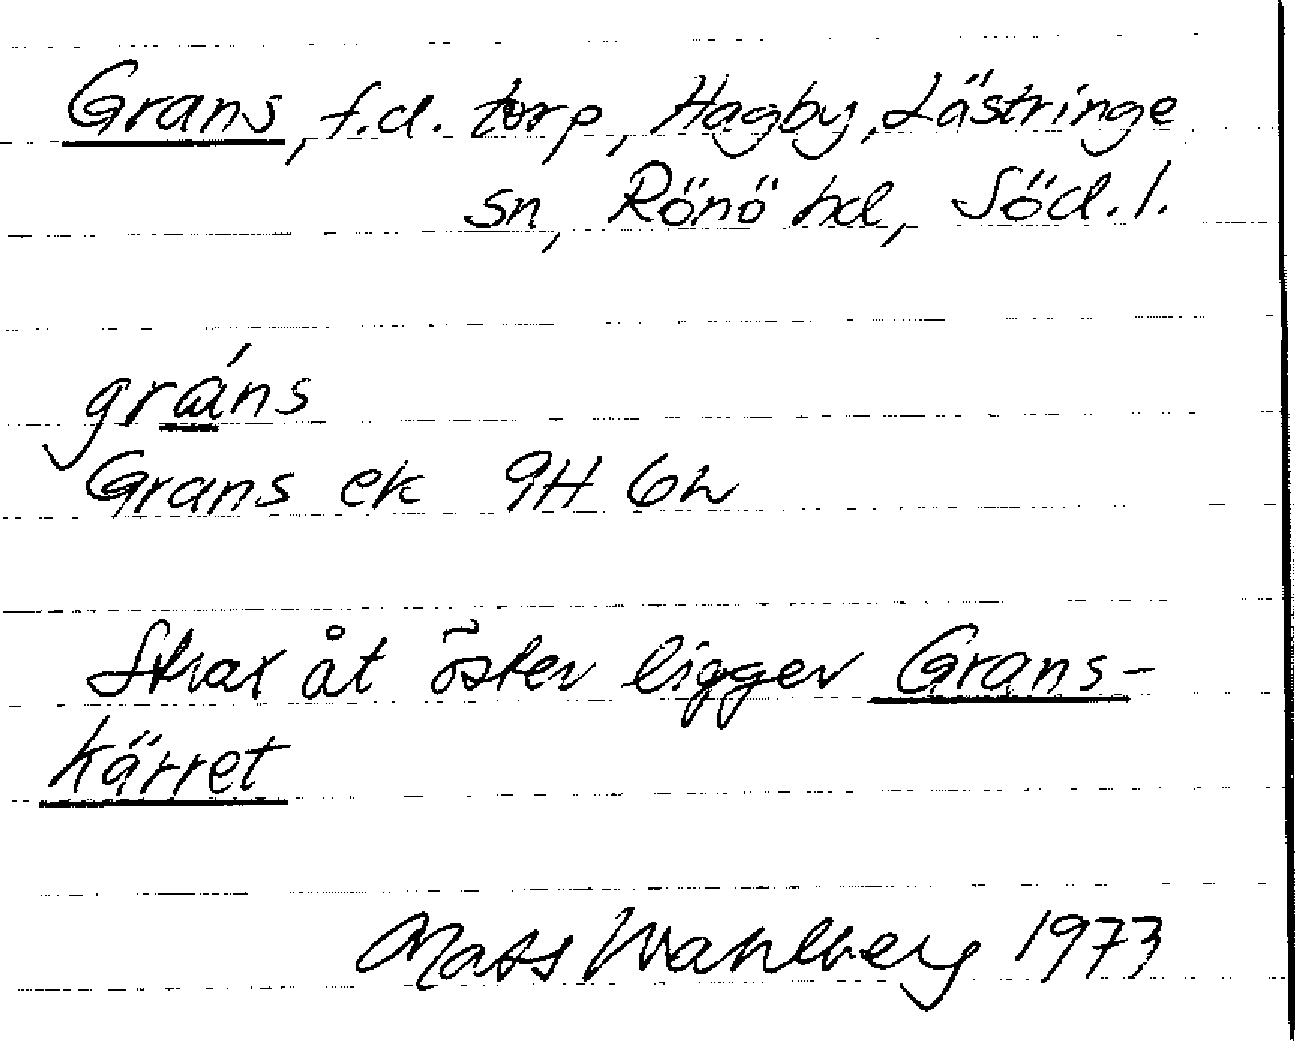 Grans, f.d. torp, Hagby, Lästringe
sn, Rönö hd, Söd. l.
gráns
Grans ek 9H 6h
Strax åt öster ligger Grans-
kärret
Mats Wahlberg 1973